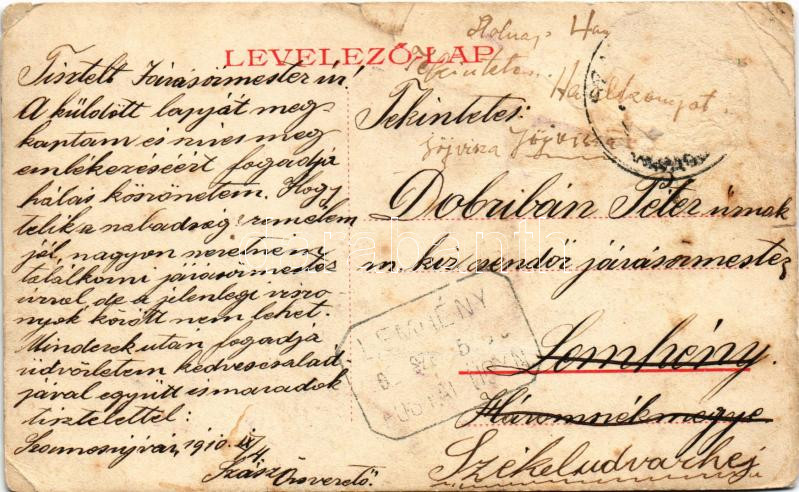 LEVELEZŐ-LAP
Tisztelt Járásőrmester úr!
A küldött lapját meg-
kaptam és szives meg
emlékezéséért fogadja
hálás köszönetem. Hogy
telik a szabadság? remélem
jól, nagyon szeretném
találkozni járásőrmester
úrral, de a jelenlegi viszo
nyok között nem lehet.
Minderek után fogadja
üdvözletem kedves család
jával együtt és maradok
tisztelettel:
Szamosújvár, 1910.
Szász
Holnap
Tekintetes
Tekintetes:
Jöjvissza Jöjvissza
Dobribán Péter úrnak
m. kir. csendőr járásőrmester
Lemhény.
Háromszékmegye
Székeludvarhej
LEMHÉNY
POSTAI ÜGYN
darabanth